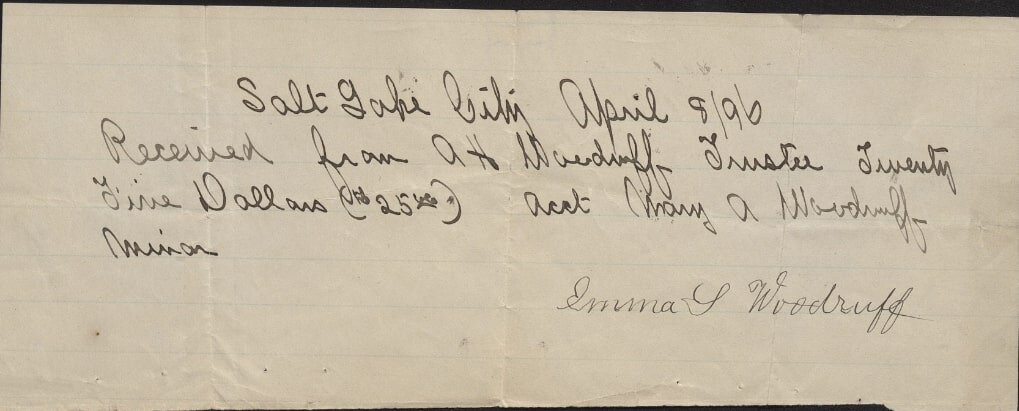 Salt Lake City April 8/96
Received from A H Woodruff Trustee Twenty
Five Dollars ($25 00/100) acct Mary A Woodruff
Minor
Emma S Woodruff